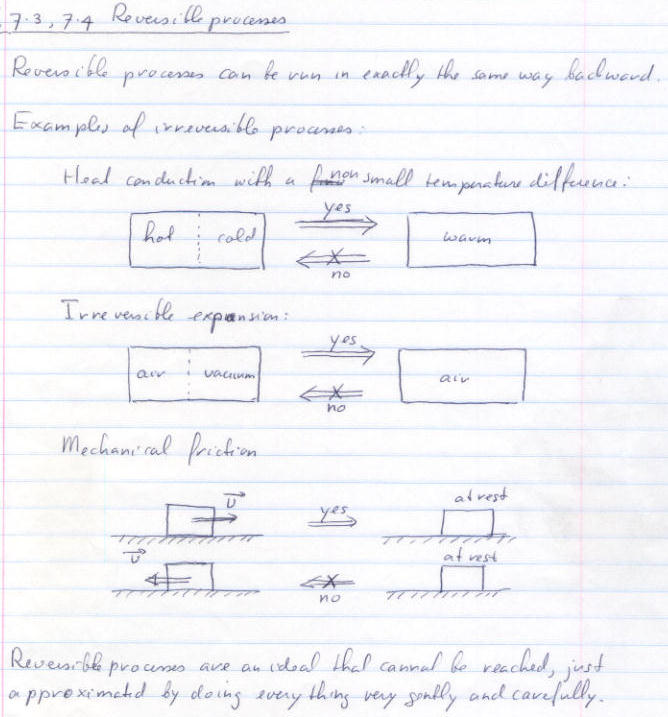 7.3, 7.4 Reversible processes
Reversible processes can be run in exactly the same way backward.
Examples of irreversible processes:
Heat conduction with a non small temperature difference:
yes
hot cold warm
no
Irreversible expansion:
yes
air vacuum air
no
Mechanical friction
v yes at rest
v at rest
no
Reversible processes are an ideal that cannot be reached, just
approximated by doing every thing very gently and carefully.